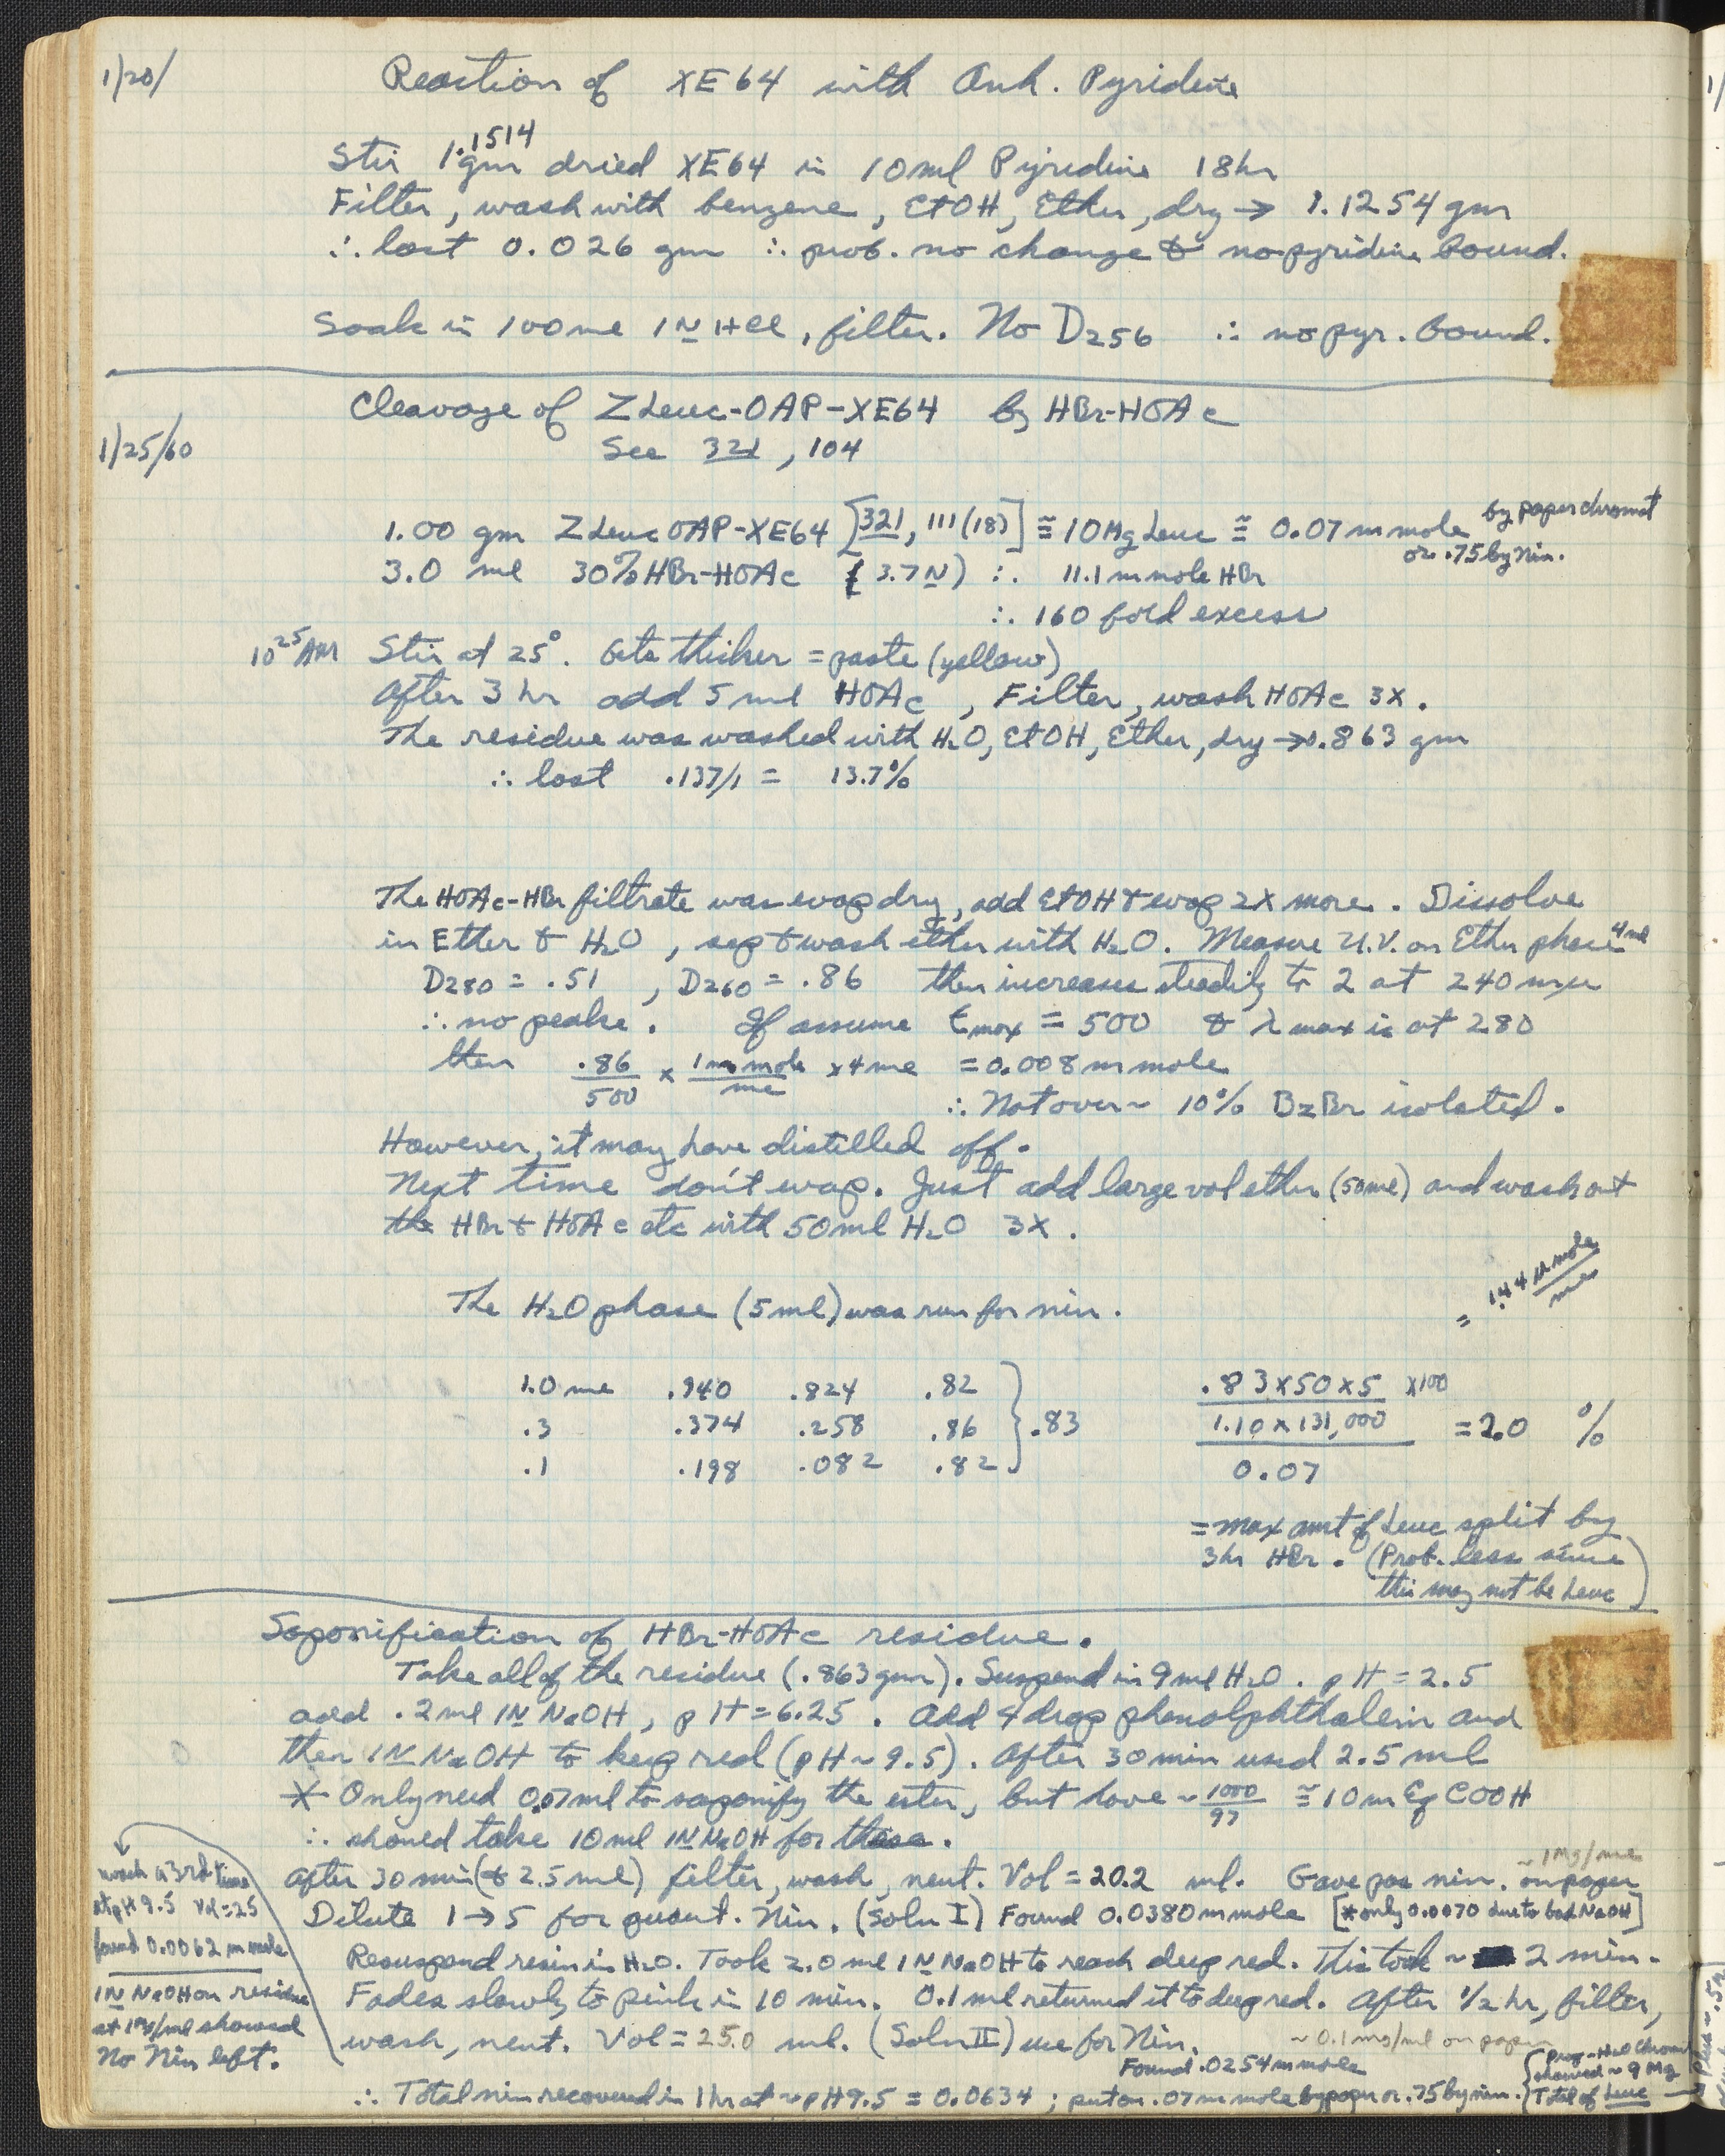 1/20/
Reaction of XE64 with Anh. Pyridine
Stir 1.1514 gm dried XE64 in 10 ml Pyridine 18 hr
Filter, wash with benzene, EtOH, Ether, dry → 1.1254 gm
∴ lost 0.026 gm ∴ prob. no change & no pyridine bound.
Soak in 100 ml 1N HCl, filter. No D256 ∴ no pyr. bound.
Cleavage of ZLeuc-OAP-XE64 by HBr-HOAc
1/25/60
See 321, 104
1.00 gm ZLeucOAP-XE64 [321, 111(18)] ≅ 10 Mg Leuc ≅ 0.07 m mole by paper chromat
or .75 by Nin.
3.0 ml 30% HBr-HOAc (3.7N) ∴ 11.1 m mole HBr
∴ 160 fold excess
10 25 AM Stir at 25°. Gets thicker = paste (yellow)
After 3 hr add 5 ml HOAc, Filter, wash HOAc 3X.
The residue was washed with H2O, EtOH, Ether, dry → 0.863 gm
∴ lost .137/1 = 13.7%
The HOAc-HBr filtrate was evap dry, add EtOH & evap 2X more. Dissolve
in Ether & H2O, sep & wash ether with H2O. Measure U.V. on Ether phase 4 ml
D280 = .51, D260 = .86 then increases steadily to 2 at 240 mµ
∴ no peaks. If assume Emax = 500 & λ max is at 280
then .86/500 x 1 m mole/ml x 4 ml = 0.008 m mole
∴ Not over ~ 10% BzBr isolated.
However, it may have distilled off.
Next time don't evap. Just add large vol ether (50 ml) and wash out
the HBr & HOAc etc with 50 ml H2O 3X.
The H2O phase (5 ml) was run for nin.
= 1.44 µ mole/ml
1.0 ml .940 .824 .82
.3 .374 .258 .86 } .83
.1 .198 .082 .82
.83x50x5 x100
1.10x131,000 = 2.0 %
0.07
= max amt of Leuc split by
3hr HBr. (Prob. less since
this may not be Leuc)
Saponification of HBr-HOAc residue.
Take all of the residue (.863 gm). Suspend in 9 ml H2O. pH = 2.5
add .2 ml 1N NaOH, pH = 6.25. Add 4 drop phenolphthalein and
then 1N NaOH to keep red (pH ~ 9.5). After 30 min used 2.5 ml
* Only need 0.07 ml to saponify the ester, but have ~ 1000/97 ≅ 10 m Eq COOH
∴ should take 10 ml 1N NaOH for these.
After 30 min (& 2.5 ml) filter, wash, neut. Vol = 20.2 ml. Gave pos nin. on paper ~ 1 Mg/ml
Dilute 1→5 for quant. Nin. (Soln I) Found 0.0380 m mole [*only 0.0070 due to bad NaOH]
Resuspend resin in H2O. Took 2.0 ml 1N NaOH to reach deep red. This took ~ 2 min.
Fades slowly to pink in 10 min. 0.1 ml returned it to deep red. After 1/2 hr, filter,
wash, neut. Vol = 25.0 ml. (Soln II) use for Nin. ~ 0.1 mg/ml on paper
Found .0254 m mole
∴ Total nin recovered in 1 hr at ~ pH 9.5 = 0.0634; put on .07 m mole by paper or .75 by nin.
{ prop-H2O Chrom
showed ~ 9 Mg
Total of Leuc →
wash a 3rd time
at pH 9.5 Vol = 25
found 0.0062 m mole
1N NaOH on residue
at 1 M/ml showed
No Nin left.